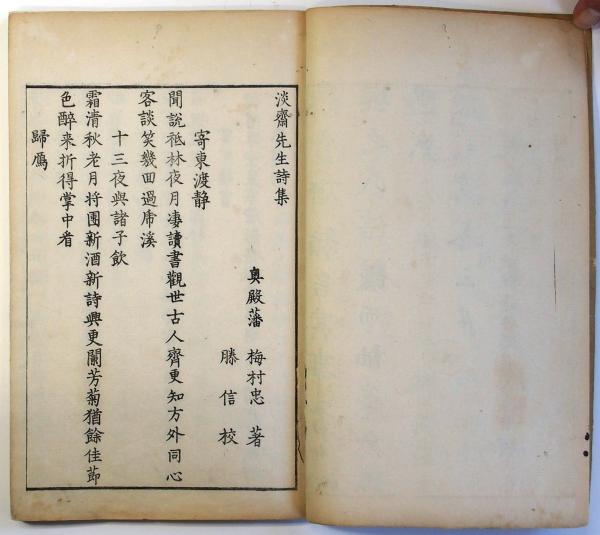 淡齋先生詩集
奥殿藩　梅村忠　著
勝信校
寄東渡静
聞說祗林夜月凄讀書觀世古人齊更知方外同心
客談笑幾回過虎溪
十三夜與諸子飲
霜清秋老月将團新酒新詩興更闌芳菊猶餘佳節
色醉来折得掌中看
歸鴈